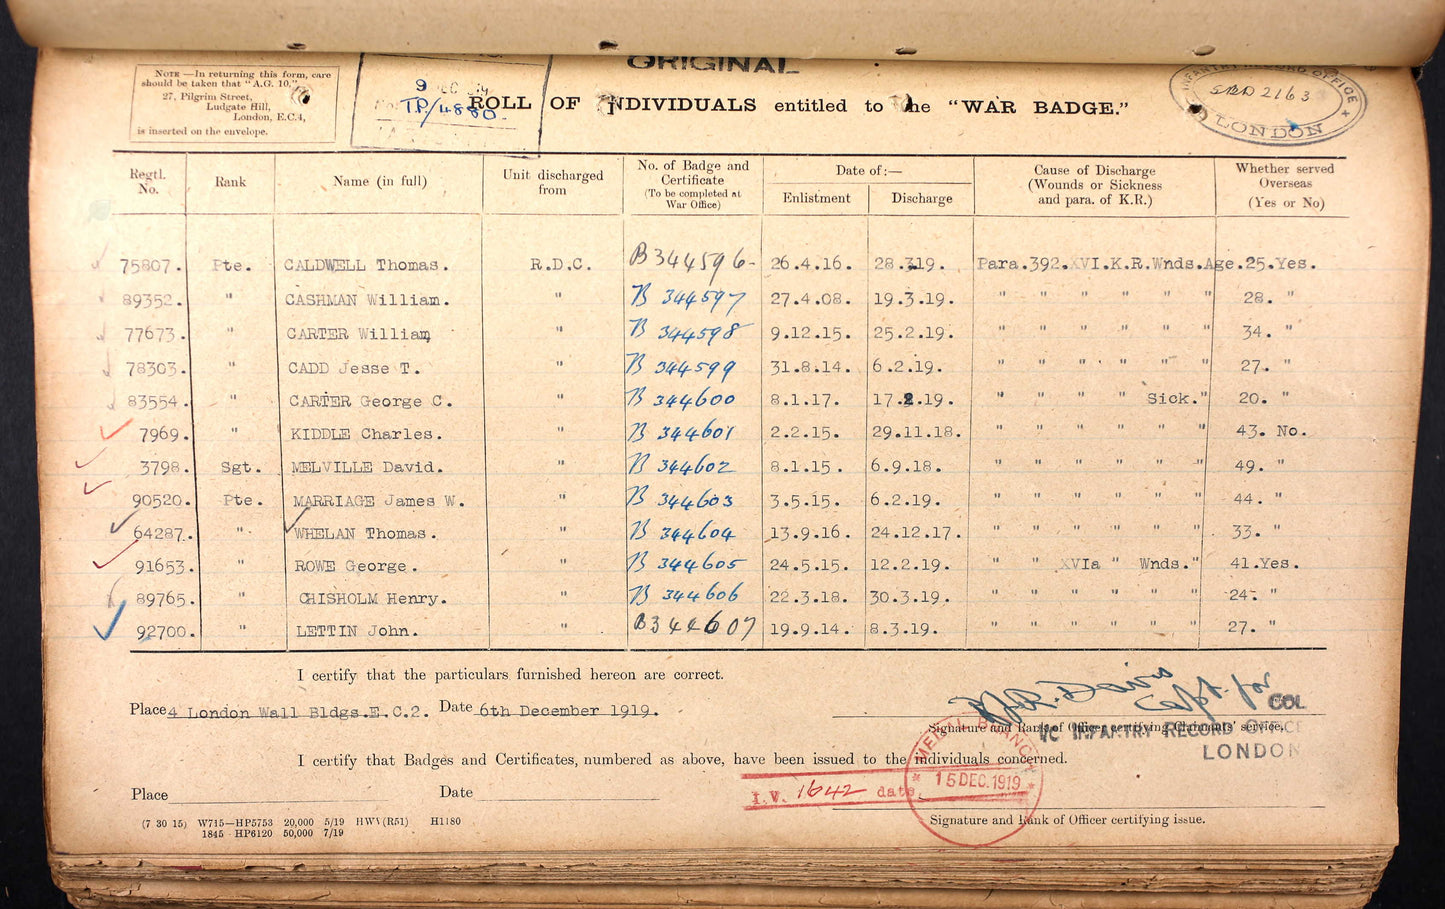 ORIGINAL
NOTE —In returning this form, care
should be taken that "A.G. 10,"
27, Pilgrim Street,
Ludgate Hill,
London, E.C.4,
is inserted on the envelope.
9 DEC 1919
TP/4880.
ROLL OF INDIVIDUALS entitled to the "WAR BADGE."
INFANTRY RECORD OFFICE
2163
LONDON
Regtl. No. Rank Name (in full) Unit discharged from No. of Badge and Certificate (To be completed at War Office) Date of:— Enlistment Discharge Cause of Discharge (Wounds or Sickness and para. of K.R.) Whether served Overseas (Yes or No)
75807. Pte. CALDWELL Thomas. R.D.C. B344596- 26.4.16. 28.3.19. Para.392.XVI.K.R.Wnds.Age.25.Yes.
89352. " CASHMAN William. " B 344597 27.4.08. 19.3.19. " " " " " " 28. "
77673. " CARTER William, " B 344598 9.12.15. 25.2.19. " " " " " " 34. "
78303. " CADD Jesse T. " B 344599 31.8.14. 6.2.19. " " " " " " 27. "
83554. " CARTER George C. " B 344600 8.1.17. 17.2.19. " " " " Sick." 20. "
7969. " KIDDLE Charles. " B 344601 2.2.15. 29.11.18. " " " " " " 43. No.
3798. Sgt. MELVILLE David. " B 344602 8.1.15. 6.9.18. " " " " " " 49. "
90520. Pte. MARRIAGE James W. " B 344603 3.5.15. 6.2.19. " " " " " " 44. "
64287. " WHELAN Thomas. " B 344604 13.9.16. 24.12.17. " " " " " " 33. "
91653. " ROWE George. " B 344605 24.5.15. 12.2.19. " " XVIa " Wnds." 41.Yes.
89765. " CHISHOLM Henry. " B 344606 22.3.18. 30.3.19. " " " " " " 24. "
92700. " LETTIN John. " B344607 19.9.14. 8.3.19. " " " " " " 27. "
I certify that the particulars furnished hereon are correct.
Place 4 London Wall Bldgs.E.C.2. Date 6th December 1919.
Davis Capt. for COL
Signature and Rank of Officer certifying Claimants' service.
I/C INFANTRY RECORD OFFICE
LONDON
I certify that Badges and Certificates, numbered as above, have been issued to the individuals concerned.
MEDAL BRANCH
15 DEC. 1919
I.V. 1642 date
Place Date
Signature and Rank of Officer certifying issue.
(7 30 15) W715—HP5753 20,000 5/19 HWV(R51) H1180
1845 HP6120 50,000 7/19